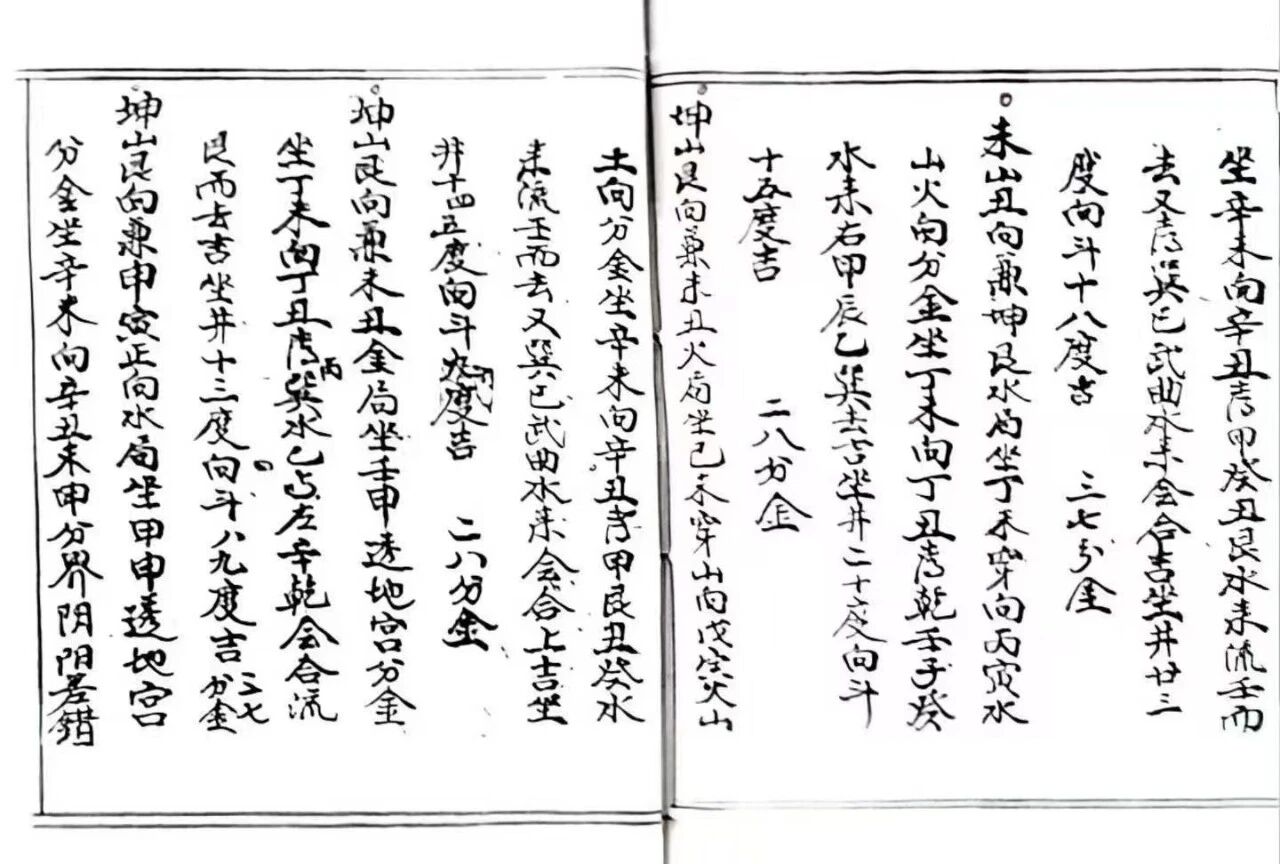 坐辛未向辛丑庤甲癸丑艮水来流壬而
去又庤巽巳武曲水来会合吉坐井廿三
度向斗十八度吉 三七分金
未山丑向兼坤艮水局坐丁未穿向丙寅水
山火向分金坐丁未向丁丑庤乾壬子癸
水来右甲辰乙巽去吉坐井二十度向斗
十五度吉 二八分金
坤山艮向兼未丑火局坐己未穿山向戊寅火山
土向分金坐辛未向辛丑庤甲艮丑癸水
来流壬而去又巽巳武曲水来会合上吉坐
井十四五度向斗九度吉 二八分金
坤山艮向兼未丑金局坐壬申透地宫分金
坐丁未向丁丑庤丙巽水乙 左辛乾会合流
艮而去吉坐井十三度向斗八九度吉 三七分金
坤山艮向兼申寅正向水局坐甲申透地宫
分金坐辛未向辛丑未申分界阴阳差错